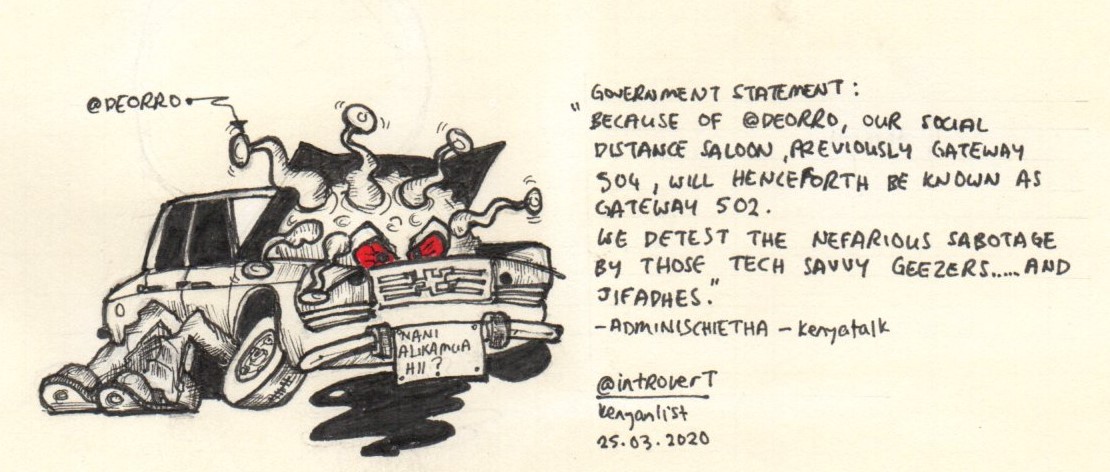 @DEORRO
NANI
ALIKAMUA
HII ?
"GOVERNMENT STATEMENT :
BECAUSE OF @DEORRO, OUR SOCIAL
DISTANCE SALOON , PREVIOUSLY GATEWAY
504 , WILL HENCEFORTH BE KNOWN AS
GATEWAY 502.
WE DETEST THE NEFARIOUS SABOTAGE
BY THOSE TECH SAVVY GEEZERS.....AND
JIFADHES."
-ADMINISCHIETHA - kenyatalk
@introverT
kenyanlist
25.03.2020